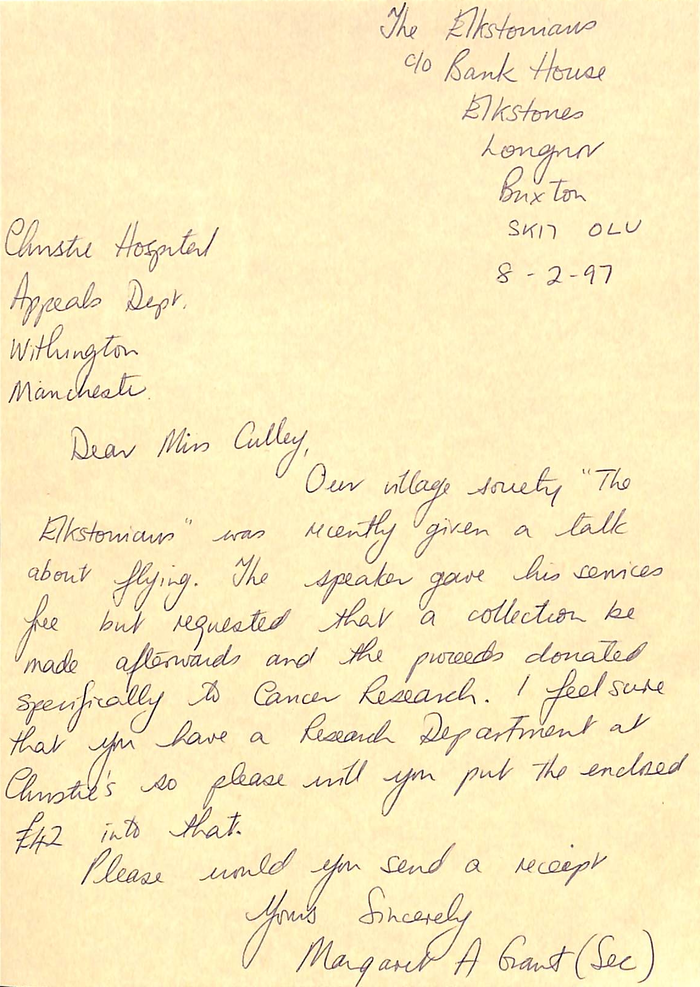 The Elkstonians
c/o Bank House
Elkstones
Longnor
Buxton
SK17 OLU
8 - 2 - 97
Christie Hospital
Appeals Dept.
Withington
Manchester.
Dear Miss Culley,
Our village society "The
Elkstonians" was recently given a talk
about flying. The speaker gave his services
free but requested that a collection be
made afterwards and the proceeds donated
specifically to Cancer Research. I feel sure
that you have a Research Department at
Christie's so please will you put the enclosed
£42 into that.
Please would you send a receipt
Yours Sincerely
Margaret A Grant (Sec)